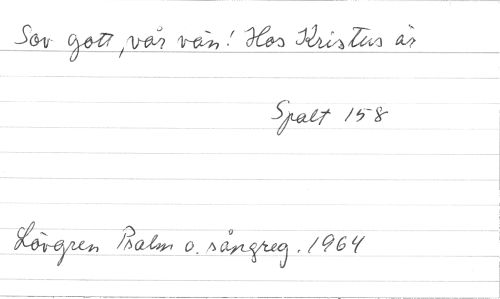 Sov gott, vår vän! Hos Kristus är
Spalt 158
Lövgren Psalm o. sångreg. 1964